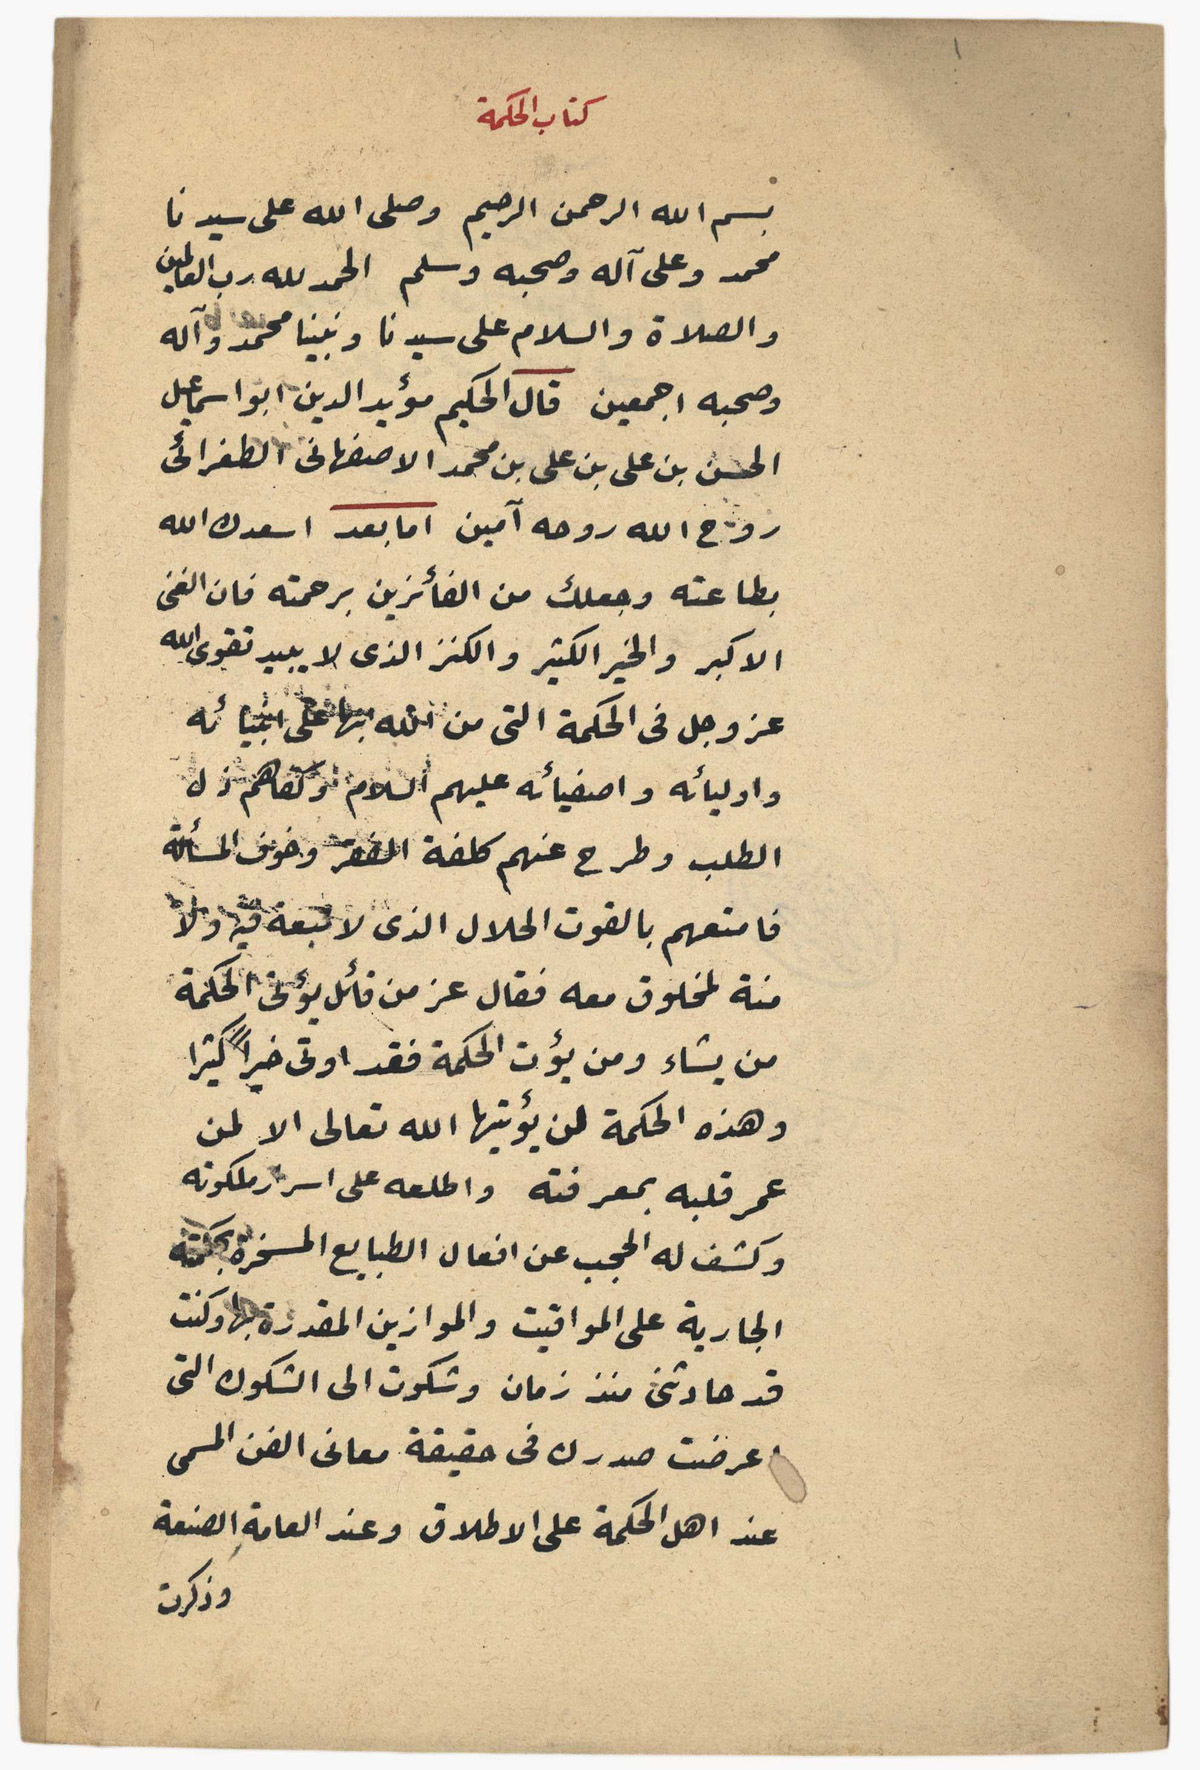 كتاب الحكمة
بسم الله الرحمن الرحيم وصلى الله على سيدنا
محمد وعلى آله وصحبه وسلم الحمد لله رب العالمين
والصلاة والسلام على سيدنا ونبينا محمد وآله
وصحبه اجمعين قال الحكيم مؤيد الدين ابو اسماعيل
الحسن بن على بن على بن محمد الاصفهانى الطغرائى
روح الله روحه آمين اما بعد اسعدك الله
بطاعته وجعلك من الفائزين برحمته فان الغنى
الاكبر والخير الكثير والكنز الذى لا يبيد تقوى الله
عز وجل فى الحكمة التى من الله بها على انبيائه
واوليائه واصفيائه عليهم السلام وكفاهم ذل
الطلب وطرح عنهم كلفة الفقر وخوف المسألة
فامتعهم بالقوت الحلال الذى لا تبعة فيه ولا
منة لمخلوق معه فقال عز من قائل يؤتى الحكمة
من يشاء ومن يؤت الحكمة فقد اوتى خيراً كثيرا
وهذه الحكمة لمن يؤتيها الله تعالى الا لمن
عمر قلبه بمعرفته واطلعه على اسرار ملكوته
وكشف له الحجب عن افعال الطبايع المسخره بحكمته
الجارية على المواقيت والموازين المقدرة بها وكنت
قد حادثنى منذ زمان وشكوت الى الشكوك التى
اعرضت صدرك فى حقيقة معانى الفن المسمى
عند اهل الحكمة على الاطلاق وعند العامة الصنعة
وذكرت